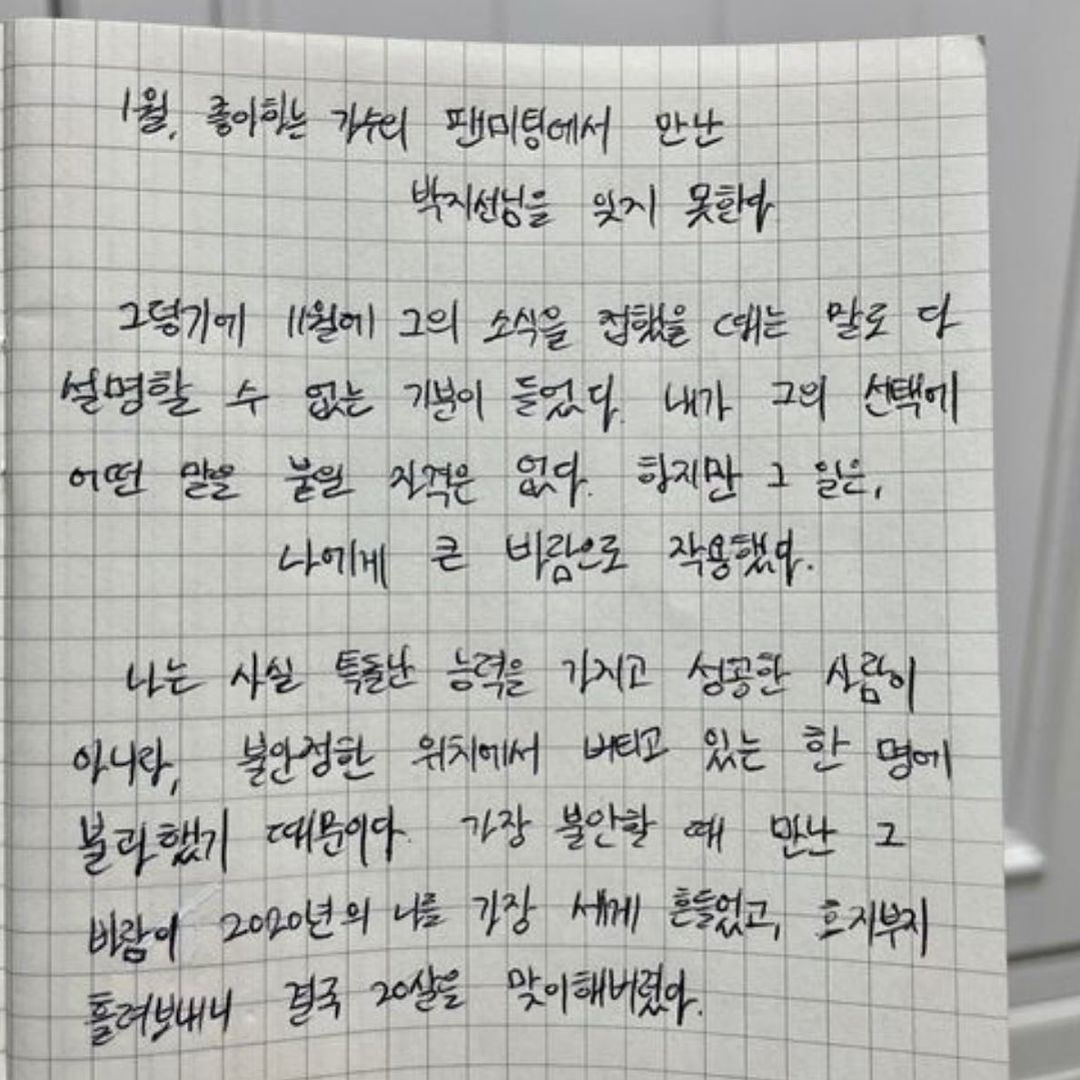 1월, 좋아하는 가수의 팬미팅에서 만난
박지선님을 잊지 못한다
그렇기에 11월에 그의 소식을 접했을 때는 말로 다
설명할 수 없는 기분이 들었다. 내가 그의 선택에
어떤 말을 붙일 자격은 없다. 하지만 그 일은,
나에게 큰 바람으로 작용했다.
나는 사실 특출난 능력을 가지고 성공한 사람이
아니라, 불안정한 위치에서 버티고 있는 한 명에
불과했기 때문이다. 가장 불안할 때 만난 그
바람이 2020년의 나를 가장 세게 흔들었고, 흐지부지
흘려보내니 결국 20살을 맞이해버렸다.